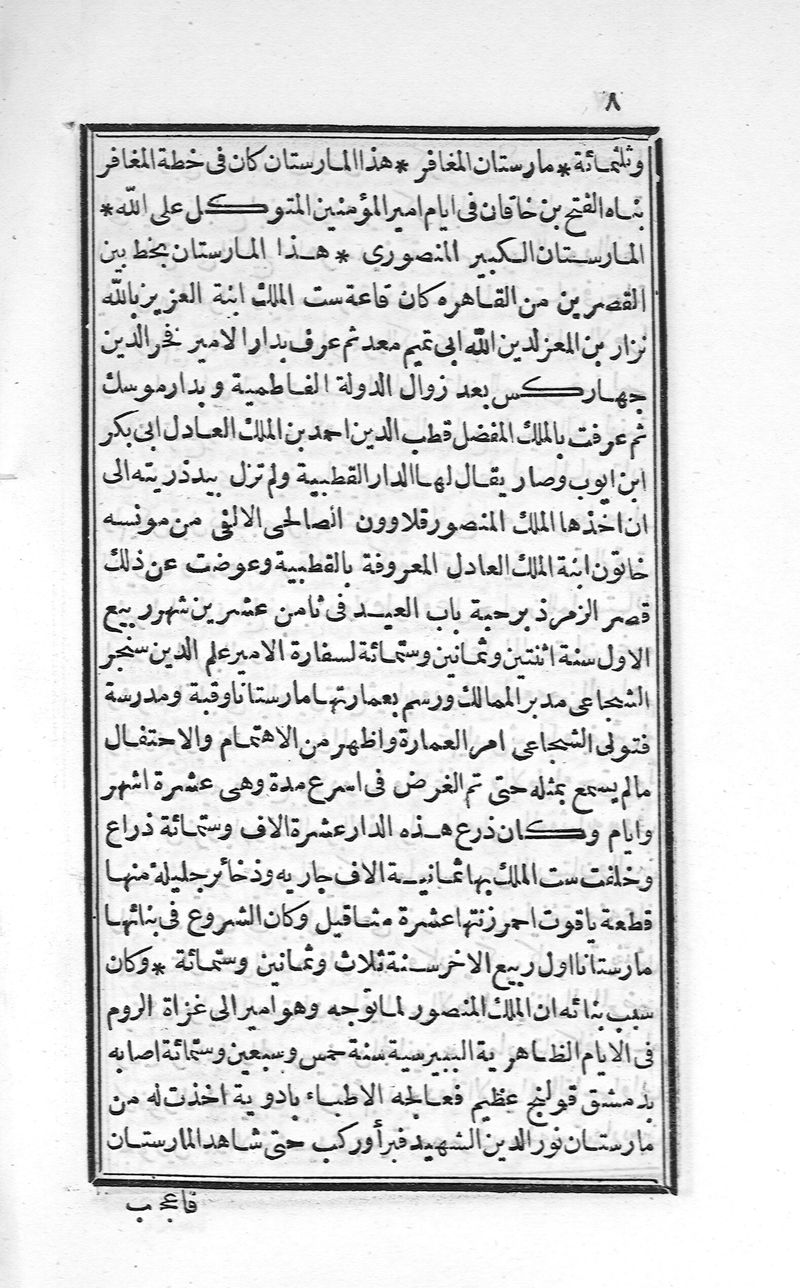 ٨
وثلثمائة * مارستان المغافر * هذا المارستان كان فى خطة المغافر
بناه الفتح بن خاقان فى ايام امير المؤمنين المتوكل على الله *
المارستان الكبير المنصورى * هذا المارستان بخط بين
القصرين من القاهره كان قاعة ست الملك ابنة العزيز بالله
نزار بن المعز لدين الله ابى تميم معد ثم عرف بدار الامير فخر الدين
جهاركس بعد زوال الدولة الفاطمية وبدار موسك
ثم عرفت بالملك المفضل قطب الدين احمد بن الملك العادل ابى بكر
ابن ايوب وصار يقال لها الدار القطبية ولم تزل بيد ذريته الى
ان اخذها الملك المنصور قلاوون الصالحى الالفى من مونسه
خاتون ابنة الملك العادل المعروفة بالقطبية وعوضت عن ذلك
قصر الزمرذ برحبة باب العيد فى ثامن عشرين شهر ربيع
الاول سنة اثنتين وثمانين وستمائة لسفارة الامير علم الدين سنجر
الشجاعى مدبر الممالك ورسم بعمارتها مارستانا وقبة ومدرسة
فتولى الشجاعى امر العمارة واظهر من الاهتمام والاحتفال
مالم يسمع بمثله حتى تم الغرض فى اسرع مدة وهى عشرة اشهر
وايام وكان ذرع هذه الدار عشرة الاف وستمائة ذراع
وخلفت ست الملك بها ثمانية الاف جاريه وذخائر جليلة منها
قطعة ياقوت احمر زنتها عشرة مثاقيل وكان الشروع فى بنائها
مارستانا اول ربيع الاخر سنة ثلاث وثمانين وستمائة * وكان
سبب بنائه ان الملك المنصور لما توجه وهو امير الى غزاة الروم
فى الايام الظاهرية البيبرسية سنة خمس وسبعين وستمائة اصابه
بدمشق قولنج عظيم فعالجه الاطباء بادوية اخذت له من
مارستان نور الدين الشهيد فبرأ وركب حتى شاهد المارستان
فاعجب